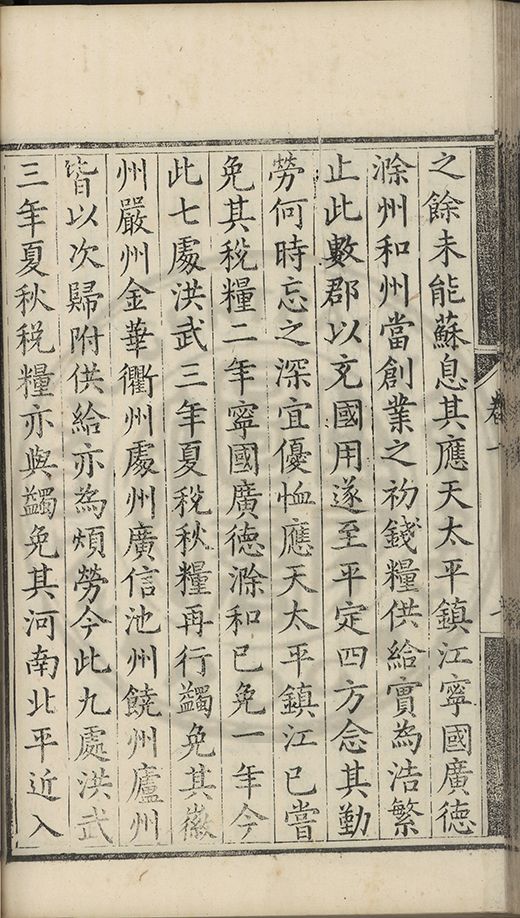 之餘未能蘇息其應天太平鎮江寧國廣德
滁州和州當創業之初錢糧供給實為浩繁
止此數郡以充國用遂至平定四方念其勤
勞何時忘之深宜優恤應天太平鎮江已嘗
免其稅糧二年寧國廣德滁和已免一年今
此七處洪武三年夏稅秋糧再行蠲免其徽
州嚴州金華衢州處州廣信池州饒州廬州
皆以次歸附供給亦為煩勞今此九處洪武
三年夏秋稅糧亦與蠲免其河南北平近入